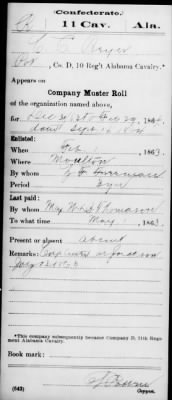 (Confederate.)
11 Cav. Ala.
Pvt, Co. D, 10 Reg't Alabama Cavalry.*
Appears on
Company Muster Roll
of the organization named above,
for Dec 31, 186 to Feb 29, 1864,
dated Sept 16, 1864
Enlisted:
When Feb 1, 1863.
Where Moulton
By whom
Period 3 yr
Last paid:
By whom Maj Thomason
To what time May 1, 1863.
Present or absent absent
Remarks: Captured
July 1863
*This company subsequently became Company D, 11th Regiment Alabama Cavalry.
Book mark:
(642) Copyist.